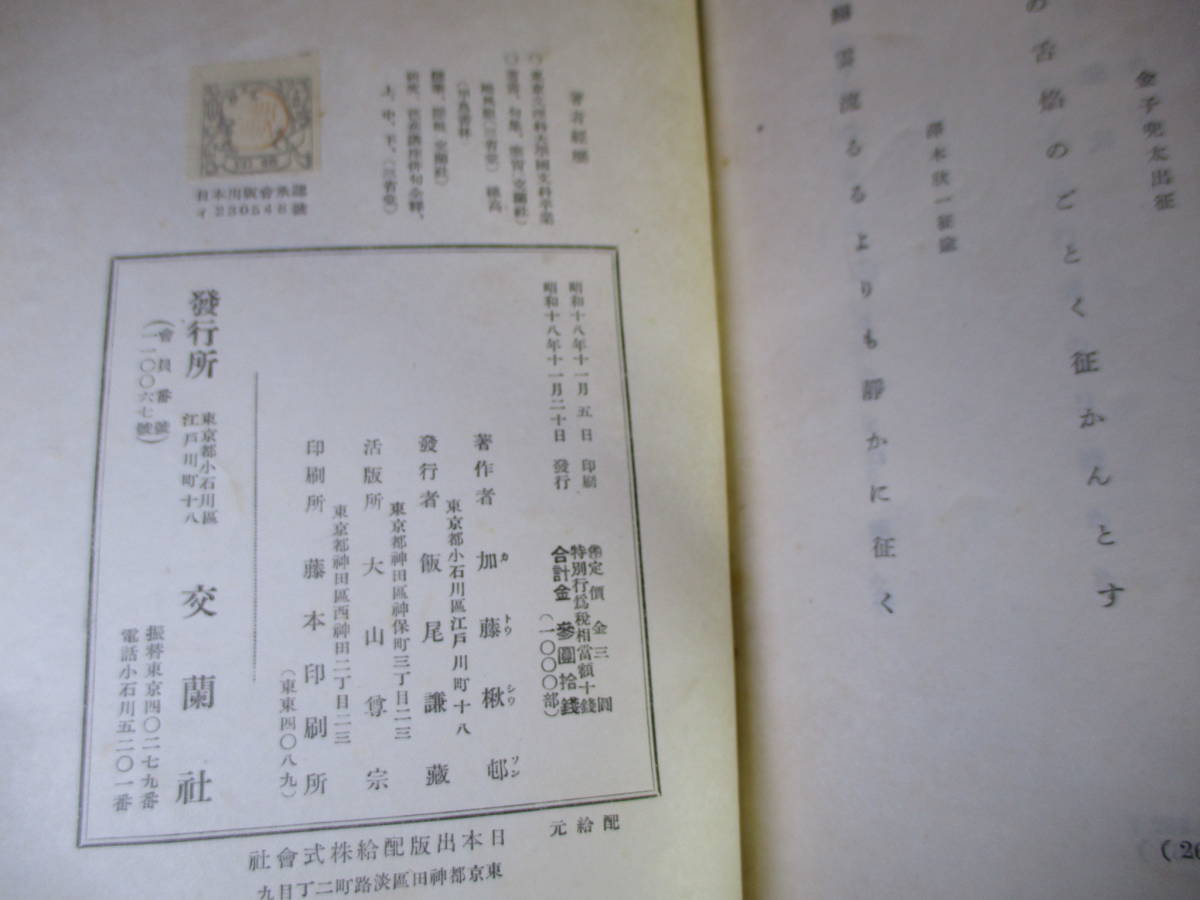 金子兜太出征
の舌焔のごとく征かんとす
澤木欣一征途
雲流るるよりも靜かに征く
(26
著者經歴
日本出版會承認
イ230546號
昭和十八年十一月五日印刷
昭和十八年十一月二十日發行
定價金三圓
特別行爲税相當額十錢
合計金參圓拾錢
(一〇〇〇部)
著作者 加藤楸邨
カトウシウソン
東京都小石川區江戸川町十八
發行者 飯尾謙藏
東京都神田區神保町三丁目二三
活版所 大山尊宗
東京都神田區西神田二丁目二三
印刷所 藤本印刷所
(東東四〇八九)
發行所 東京都小石川區江戸川町十八 交蘭社
振替東京四〇二七九番
電話小石川五二〇一番
(會員番號
一一〇〇六七號)
配給元
日本出版配給株式會社
東京都神田區淡路町二丁目九